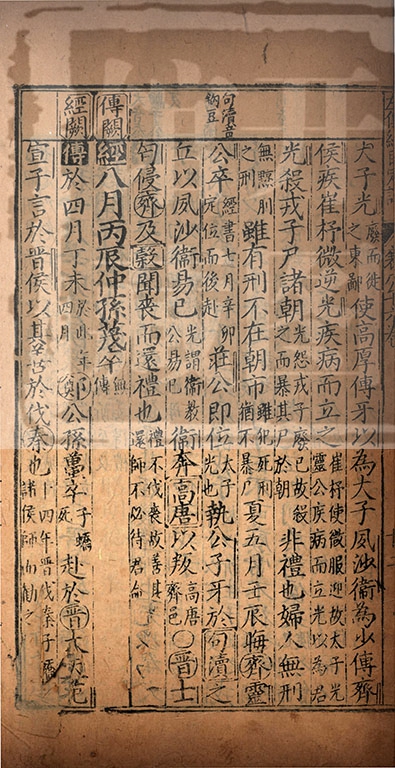 大子光廢而徙之東鄙使高厚傅牙以為大子夙沙衛為少傅齊
侯疾崔杼微逆光疾病而立之崔杼使微服迎故太子光靈公疾病而立光以為君
光殺戎子尸諸朝光怨戎子廢已故殺之而暴其尸於朝非禮也婦人無刑
無黥刖之刑雖有刑不在朝市雖犯死刑猶不暴尸夏五月壬辰晦齊靈
句瀆音鉤豆
公卒經書七月辛卯定位而後赴莊公即位太子光也執公子牙於句瀆之
丘以夙沙衛易已光謂衛教公易已衛奔高唐以叛高唐齊邑○晉士
匄侵齊及穀聞喪而還禮也禮不伐喪故善其還師不必待君命
傳闕
經八月丙辰仲孫蔑卒無傳
經闕
傳於四月丁未於此年四月鄭公孫蠆卒子蟜死赴於晉大夫范
宣子言於晉侯以其善於伐秦也十四年晉伐秦子蟜諸侯師而勸之